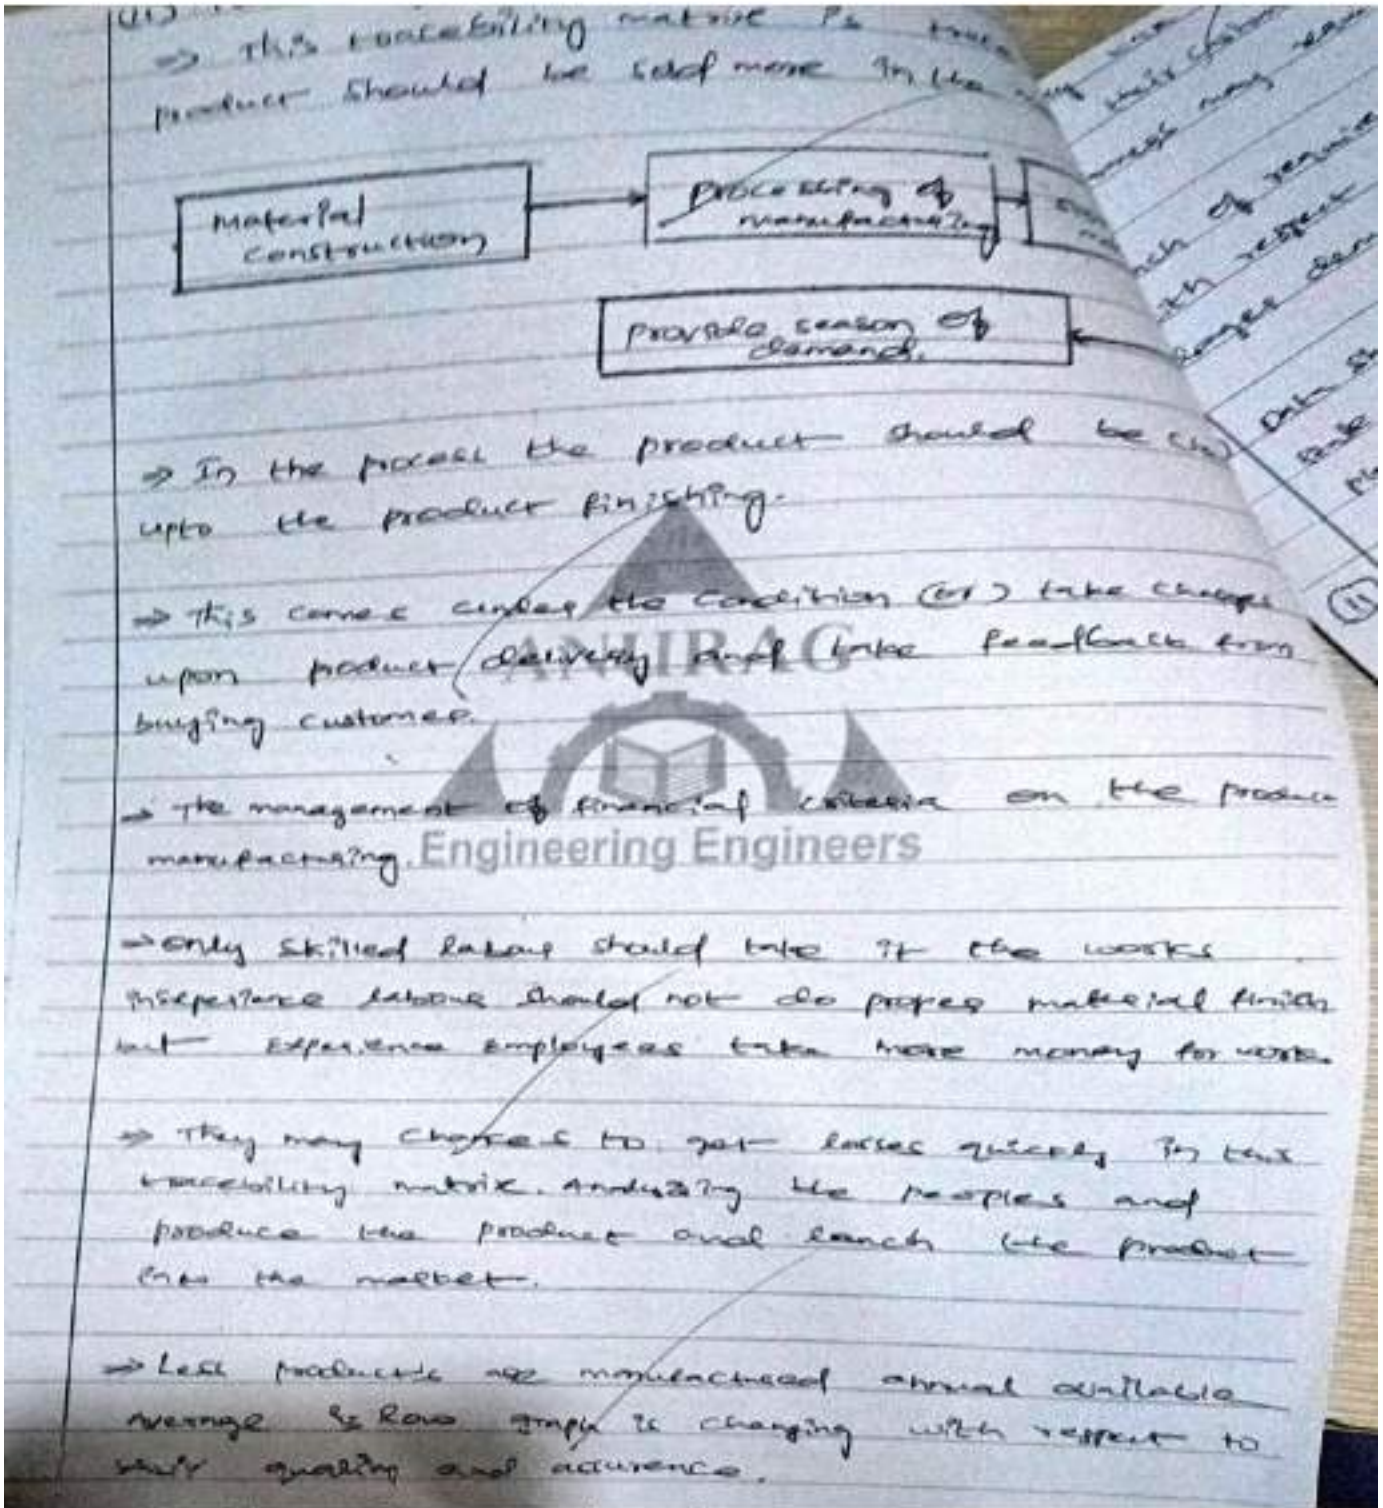 ⇒ This tracebility matrix is
product should be sold more in the
Material
construction
Processing of
manufacturing
Provide season of
demand.
⇒ In the process the product should be
upto the product finishing.
⇒ This comes under the Condition (or) take charge
upon product delivery and take feedback from
buying customer.
→ The management of financial criteria on the produce
manufacturing.
⇒ only skilled labour should take it the works
labour should not do proper material finish
but experience employees take more money for work.
⇒ They may chances to get losses quickly in this
tracebility matrix. Analyzing the peoples and
produce the product and lanch the product
into the market.
⇒ Less product's are manufactured annual available
average is low graph is changing with respect to
their quality and
ANURAG
Engineering Engineers
of require
with respect
Data
11